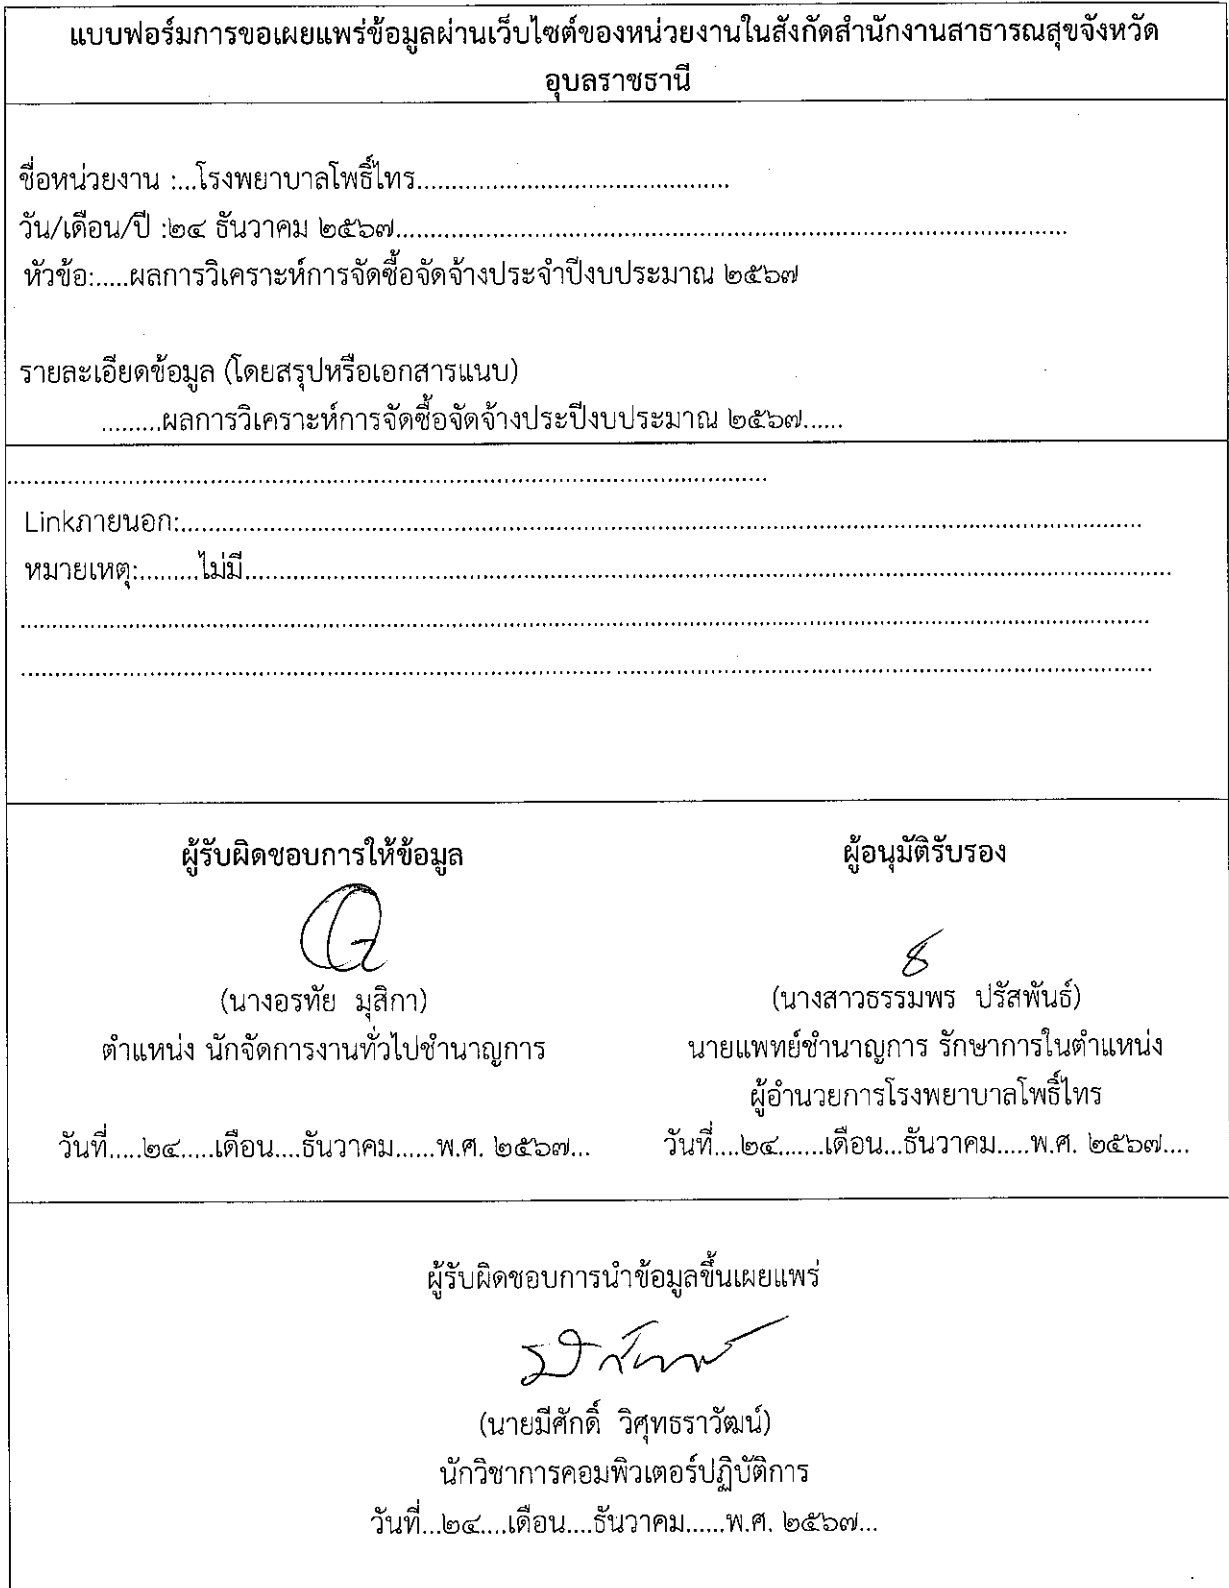 แบบฟอร์มการขอเผยแพร่ข้อมูลผ่านเว็บไซต์ของหน่วยงานในสังกัดสำนักงานสาธารณสุขจังหวัด
อุบลราชธานี
ชื่อหน่วยงาน :...โรงพยาบาลโพธิ์ไทร..........................................
วัน/เดือน/ปี :๒๔ ธันวาคม ๒๕๖๗..........................................................................................
หัวข้อ:.....ผลการวิเคราะห์การจัดซื้อจัดจ้างประจำปีงบประมาณ ๒๕๖๗
รายละเอียดข้อมูล (โดยสรุปหรือเอกสารแนบ)
.........ผลการวิเคราะห์การจัดซื้อจัดจ้างประปีงบประมาณ ๒๕๖๗......
Linkภายนอก:................................................................................................................................
หมายเหตุ:.........ไม่มี............................................................................................................................
ผู้รับผิดชอบการให้ข้อมูล
(นางอรทัย มุสิกา)
ตำแหน่ง นักจัดการงานทั่วไปชำนาญการ
วันที่.....๒๔.....เดือน....ธันวาคม......พ.ศ. ๒๕๖๗...
ผู้อนุมัติรับรอง
(นางสาวธรรมพร ปรัสพันธ์)
นายแพทย์ชำนาญการ รักษาการในตำแหน่ง
ผู้อำนวยการโรงพยาบาลโพธิ์ไทร
วันที่....๒๔.......เดือน...ธันวาคม.....พ.ศ. ๒๕๖๗....
ผู้รับผิดชอบการนำข้อมูลขึ้นเผยแพร่
(นายมีศักดิ์ วิศุทธราวัฒน์)
นักวิชาการคอมพิวเตอร์ปฏิบัติการ
วันที่...๒๔....เดือน....ธันวาคม......พ.ศ. ๒๕๖๗...